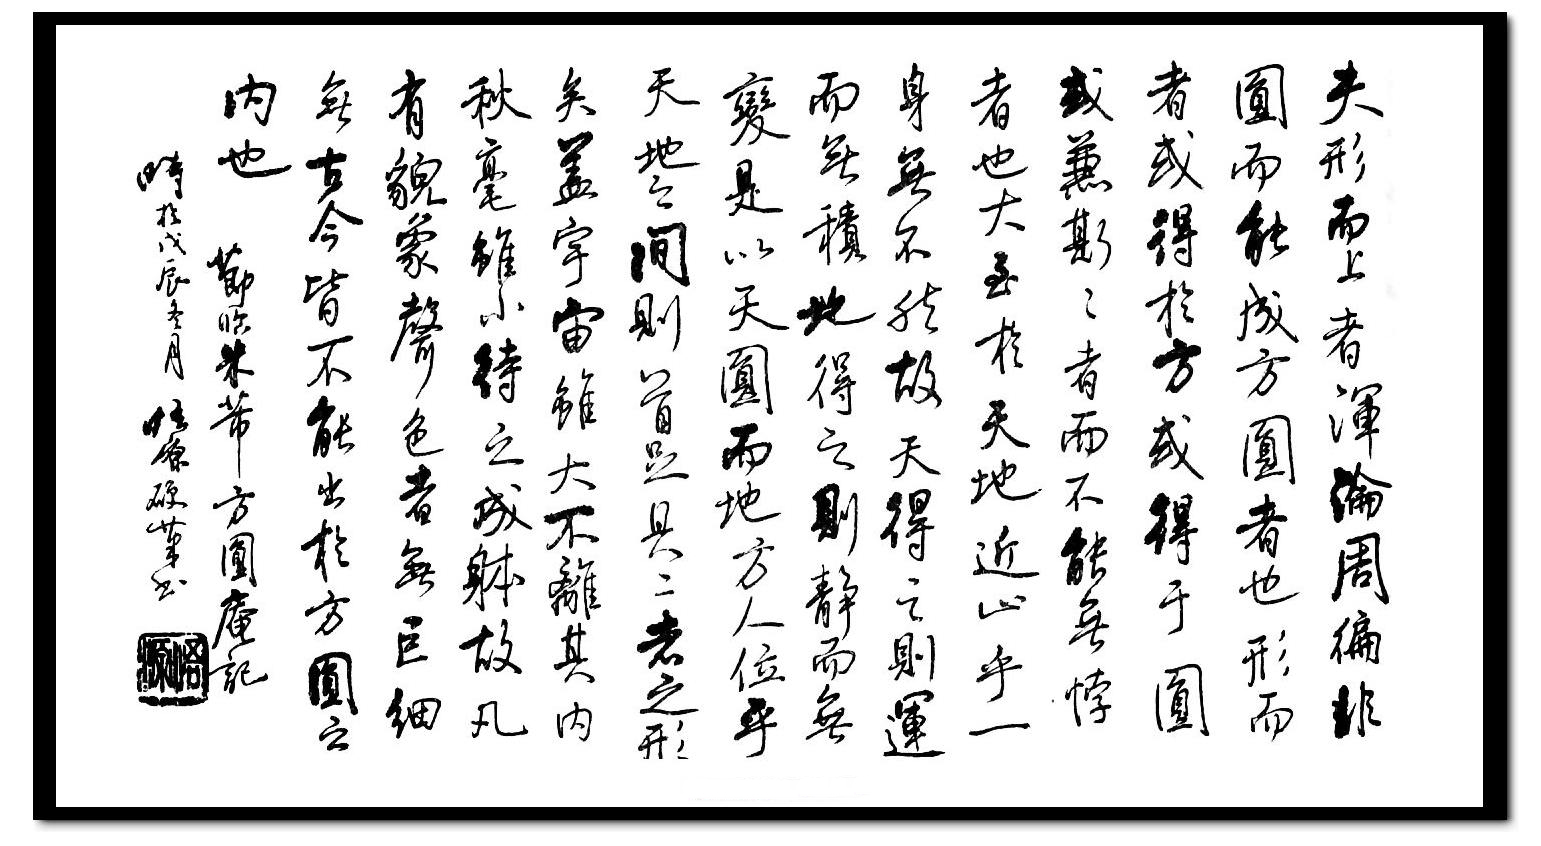 夫形而上者渾淪周徧非
圓而能成方圓者也形而
者或得於方或得于圓
或兼斯〻者而不能無悖
者也大至於天地近止乎一
身無不然故天得之則運
而無積地得之則静而無
變是以天圓而地方人位乎
天地之間則首足具二者之形
矣蓋宇宙雖大不離其内
秋毫雖小待之成躰故凡
有貌象聲色者無巨細
無古今皆不能出於方圓之
内也
節臨米芾方圓庵記
時於戊辰冬月 悟原硬筆書
悟源